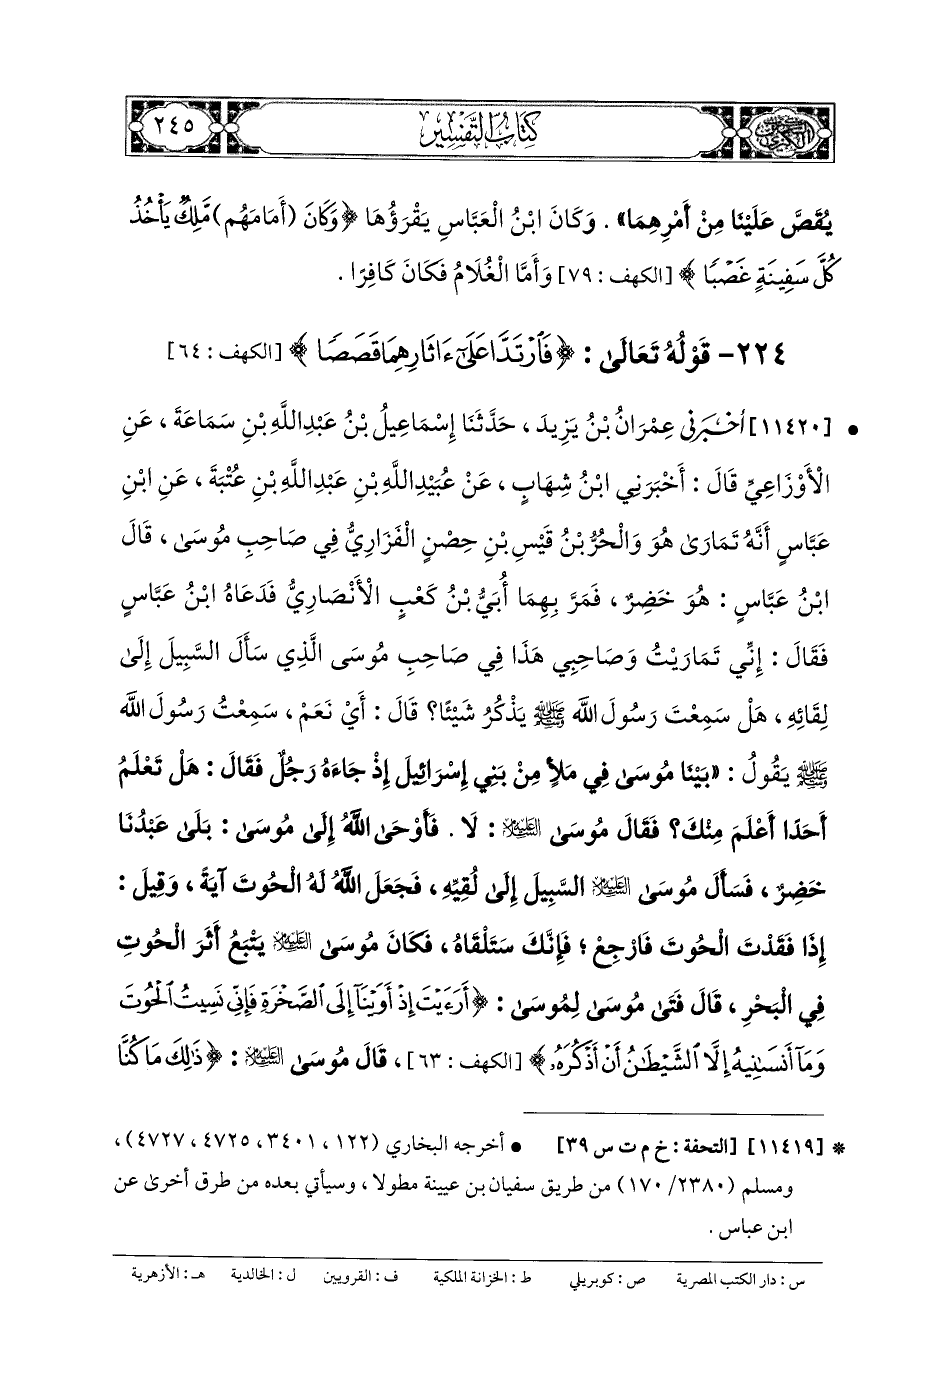 ٢٤٥ كتاب التفسير الكبرى
يُقَصَّ عَلَيْنَا مِنْ أَمْرِهِمَا» . وَكَانَ ابْنُ الْعَبَّاسِ يَقْرَؤُهَا ﴿وَكَانَ (أَمَامَهُم) مَّلِكٌ يَأْخُذُ
كُلَّ سَفِينَةٍ غَصْبًا﴾ [الكهف : ٧٩] وَأَمَّا الْغُلَامُ فَكَانَ كَافِرًا .
٢٢٤- قَوْلُهُ تَعَالَىٰ : ﴿فَٱرْتَدَّا عَلَىٰٓ ءَاثَارِهِمَا قَصَصًا﴾ [الكهف : ٦٤]
• [١١٤٢٠] أَخْبَرَنِي عِمْرَانُ بْنُ يَزِيدَ ، حَدَّثَنَا إِسْمَاعِيلُ بْنُ عَبْدِاللَّهِ بْنِ سَمَاعَةَ ، عَنِ
الْأَوْزَاعِيِّ قَالَ : أَخْبَرَنِي ابْنُ شِهَابٍ ، عَنْ عُبَيْدِاللَّهِ بْنِ عَبْدِاللَّهِ بْنِ عُتْبَةَ ، عَنِ ابْنِ
عَبَّاسٍ أَنَّهُ تَمَارَىٰ هُوَ وَالْحُرُّ بْنُ قَيْسِ بْنِ حِصْنٍ الْفَزَارِيُّ فِي صَاحِبِ مُوسَىٰ ، قَالَ
ابْنُ عَبَّاسٍ : هُوَ خَضِرٌ ، فَمَرَّ بِهِمَا أُبَيُّ بْنُ كَعْبٍ الْأَنْصَارِيُّ فَدَعَاهُ ابْنُ عَبَّاسٍ
فَقَالَ : إِنِّي تَمَارَيْتُ وَصَاحِبِي هَذَا فِي صَاحِبِ مُوسَى الَّذِي سَأَلَ السَّبِيلَ إِلَىٰ
لِقَائِهِ ، هَلْ سَمِعْتَ رَسُولَ اللَّه ﷺ يَذْكُرُ شَيْئًا؟ قَالَ : أَيْ نَعَمْ ، سَمِعْتُ رَسُولَ اللَّه
ﷺ يَقُولُ : «بَيْنَا مُوسَىٰ فِي مَلَأٍ مِنْ بَنِي إِسْرَائِيلَ إِذْ جَاءَهُ رَجُلٌ فَقَالَ : هَلْ تَعْلَمُ
أَحَدًا أَعْلَمَ مِنْكَ؟ فَقَالَ مُوسَىٰ عليه السلام : لَا . فَأَوْحَى اللَّهُ إِلَىٰ مُوسَىٰ : بَلَىٰ عَبْدُنَا
خَضِرٌ ، فَسَأَلَ مُوسَىٰ عليه السلام السَّبِيلَ إِلَىٰ لُقِيِّهِ ، فَجَعَلَ اللَّهُ لَهُ الْحُوتَ آيَةً ، وَقِيلَ :
إِذَا فَقَدْتَ الْحُوتَ فَارْجِعْ ؛ فَإِنَّكَ سَتَلْقَاهُ ، فَكَانَ مُوسَىٰ عليه السلام يَتْبَعُ أَثَرَ الْحُوتِ
فِي الْبَحْرِ ، قَالَ فَتَىٰ مُوسَىٰ لِمُوسَىٰ : ﴿أَرَءَيْتَ إِذْ أَوَيْنَآ إِلَى ٱلصَّخْرَةِ فَإِنِّى نَسِيتُ ٱلْحُوتَ
وَمَآ أَنسَىٰنِيهُ إِلَّا ٱلشَّيْطَـٰنُ أَنْ أَذْكُرَهُۥ﴾ [الكهف : ٦٣] ، قَالَ مُوسَىٰ عليه السلام : ﴿ذَٰلِكَ مَا كُنَّا
* [١١٤١٩] [التحفة : خ م ت س ٣٩] • أخرجه البخاري (١٢٢ ، ٣٤٠١ ، ٤٧٢٥ ، ٤٧٢٧) ،
ومسلم (١٧٠/٢٣٨٠) من طريق سفيان بن عيينة مطولا ، وسيأتي بعده من طرق أخرىٰ عن
ابن عباس .
س : دار الكتب المصرية ص : كوبريلي ط : الخزانة الملكية ف : القرويين ل : الخالدية هـ : الأزهرية